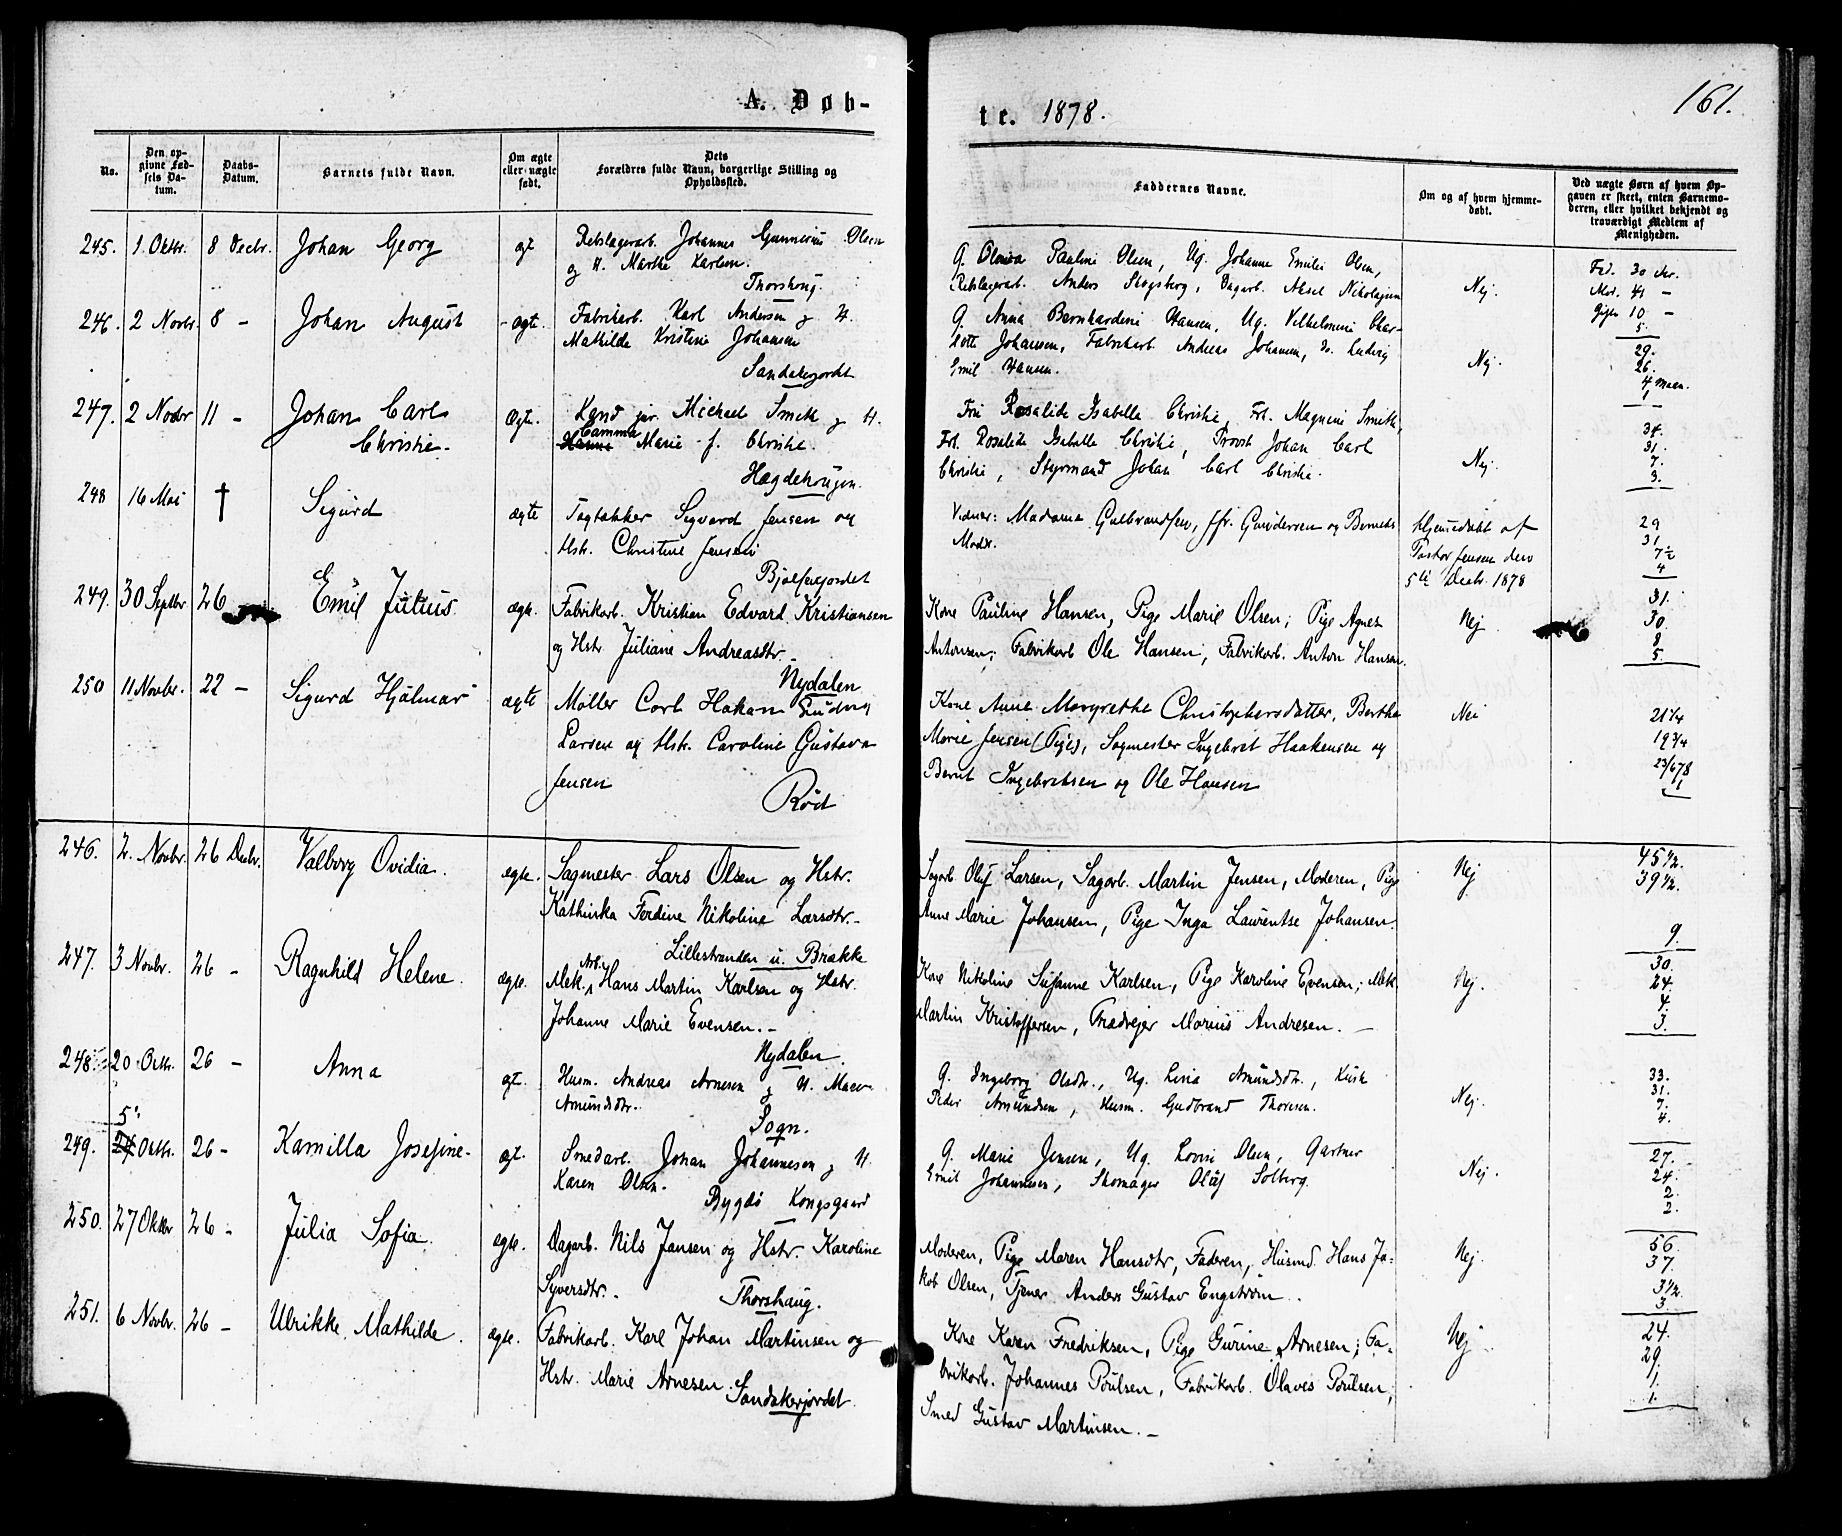 A. Døb-
te. 1878.
161.
No.
Den op-
givne Fød-
sels Da-
tum.
Daabs-
Datum.
Barnets fulde Navn.
Om ægte
eller uægte
født.
Dets
Forældres fulde Navn, borgerlige Stilling og
Opholdssted.
Faddernes Navne.
Om og af hvem hjemme-
døbt.
Ved uægte Børn af hvem Op-
gaven er skeet, enten Barnemo-
deren, eller hvilket bekjendt og
troværdigt Medlem af
Menigheden.
245. 1 Oktbr. 8 Decbr. Johan Georg ægt. Rebslagerarb. Johannes Gunnerius Olsen
og H. Marthe Karlsen.
Thorshoug.
G. Pauline Olsen, Ug. Johanne Emilie Olsen,
Rebslagerarb. Anders Skogsberg, Dagarb. Aksel Nikolajsen
Nej.
Fad. 30
Mor. 41 -
10 -
5.
246. 2 Novbr. 8 - Johan August ægte. Fabrikarb. Karl Andersen og H.
Mathilde Kristine Johansen
Sandakerjordet
G. Anna Bernhardine Hansen, Ug. Vilhelmine Char-
lotte Johansen, Fabrikarb. Andreas Johansen, do. Ludvig
Emil Hansen.
Nej.
29.
26.
4
1
247. 2 Novbr 11 - Johan Carl
Christie. Ægte. Kand. jur. Michael Smith og H.
Camma
Hanne Marie f. Christie.
Hægdehougen.
Fru Rosalide Isabella Christie, Frk. Magnine Smith,
Frk. Rosalide Isabella Christie, Provst Johan Carl
Christie, Styrmand Johan Carl Christie.
Nej.
34.
31.
7.
3.
248 16 Mai † Sigurd ægte Tagtækker Sigvard Jensen og
Hstr. Christine Jensen
Vidner: Madame Gulbrandsen, Jfr. Gundersen og Barnets
Moder.
Hjemmedøbt af
Pastor Jensen den
5te Decbr. 1878
29
31
7½
4
249. 30 Septbr 26 Emil Julius. ægte. Fabrikarb. Kristian Edvard Kristiansen
og Hstr. Juliane Andreasdtr.
Nydalen
Kone Pauline Hansen, Pige Marie Olsen; Pige Agnes
Antonsen; Fabrikarb Ole Hansen, Fabrikarb. Anton Hansen.
Nej
31.
30.
8
5.
250 11 Novbr. 22 - Sigurd Hjalmar ægte Møller Carl Hakam Ludvig
Larsen og Hstr. Caroline Gustava
Jensen
Röd
Kone Anne Margrethe Christophersdatter, Berthe
Marie Jensen (Pige), Sagmester Ingebret Haakensen og
Bernt Ingebretsen og Ole Hansen
Nei
21¼
19¾
23/678
1
246. 2. Novbr. 26 Decbr. Valborg Ovidia. egte. Sagmester Lars Olsen og Hstr.
Kathinka Ferdine Nikoline Larsdtr.-
Lillestranden u. Brække
Sagarb. Oluf Larsen, Sagarb. Martin Jensen, Moderen, Pige
Anne Marie Johansen, Pige Inga Laurentse Johansen.
Nej
45½.
39½.
9.
247. 3 Novbr. 26 - Ragnhild Helene. ægte. Mek. Arb. Hans Martin Karlsen og Hstr.
Johanne Marie Evensen.-
Nydalen.
Kone Nikoline Susanne Karlsen, Pige Karoline Evensen; Mek.
Martin Kristoffersen, Trædreier Marius Andresen. -
Nej.
30.
24.
4.
3.
248. 20 Octbr. 26 - Anna ægt. Husm. Andreas Arnesen og H. Maren
Amundsdtr.
Sogn.
G. Ingeborg Olsdtr., Ug. Lina Amundsdtr., Kusk
Peder Amundsen, Husm. Gudbrand Thoresen.
Nej.
33.
31.
7.
4.
249. 5
24 Octbr. 26 - Kamilla Josefine- ægt. Smedarb. Johan Johannesen og H.
Karen Olsen.
Bygdö Kongsgaard
G. Marie Jensen, Ug. Lovise Olsen, Gartner
Emil Johannesen, Skomager Oluf Solberg.
Nej.
27.
24.
2.
2.
250. 27 Oktbr 26 - Julia Sofia. egte. Dagarb. Nils Jansen og Hstr. Karoline
Syversdtr.-
Thorshaug.
Moderen, Pige Maren Hansdtr, Faderen, Husmd. Hans Ja-
kob Olsen, Tjener Anders Gustav Engström.
Nej.
56.
37.
3½.
3.
251. 6 Novbr. 26 - Ulrikke Mathilde. ægte. Fabrikarb. Karl Johan Martinsen og
Hstr. Marie Arnesen.
Sandakerjordet.
Kone Karen Fredriksen, Pige Gurine Arnesen; Fa-
brikarb. Johannes Poulsen, Fabrikarb. Olaves Poulsen,
Smed Gustav Martinsen.-
Nej
24.
29.
1.
1.